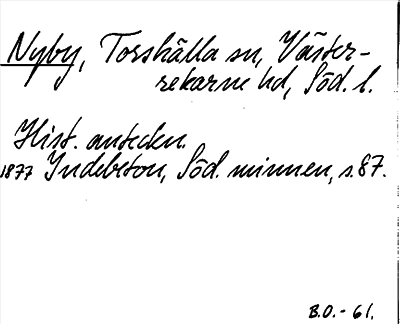 Nyby, Torshälla sn, Väster-
rekarne hd, Söd. l.
Hist. anteckn.
1877 Indebetou, Söd. minnen, s. 87.
B.O. - 61.